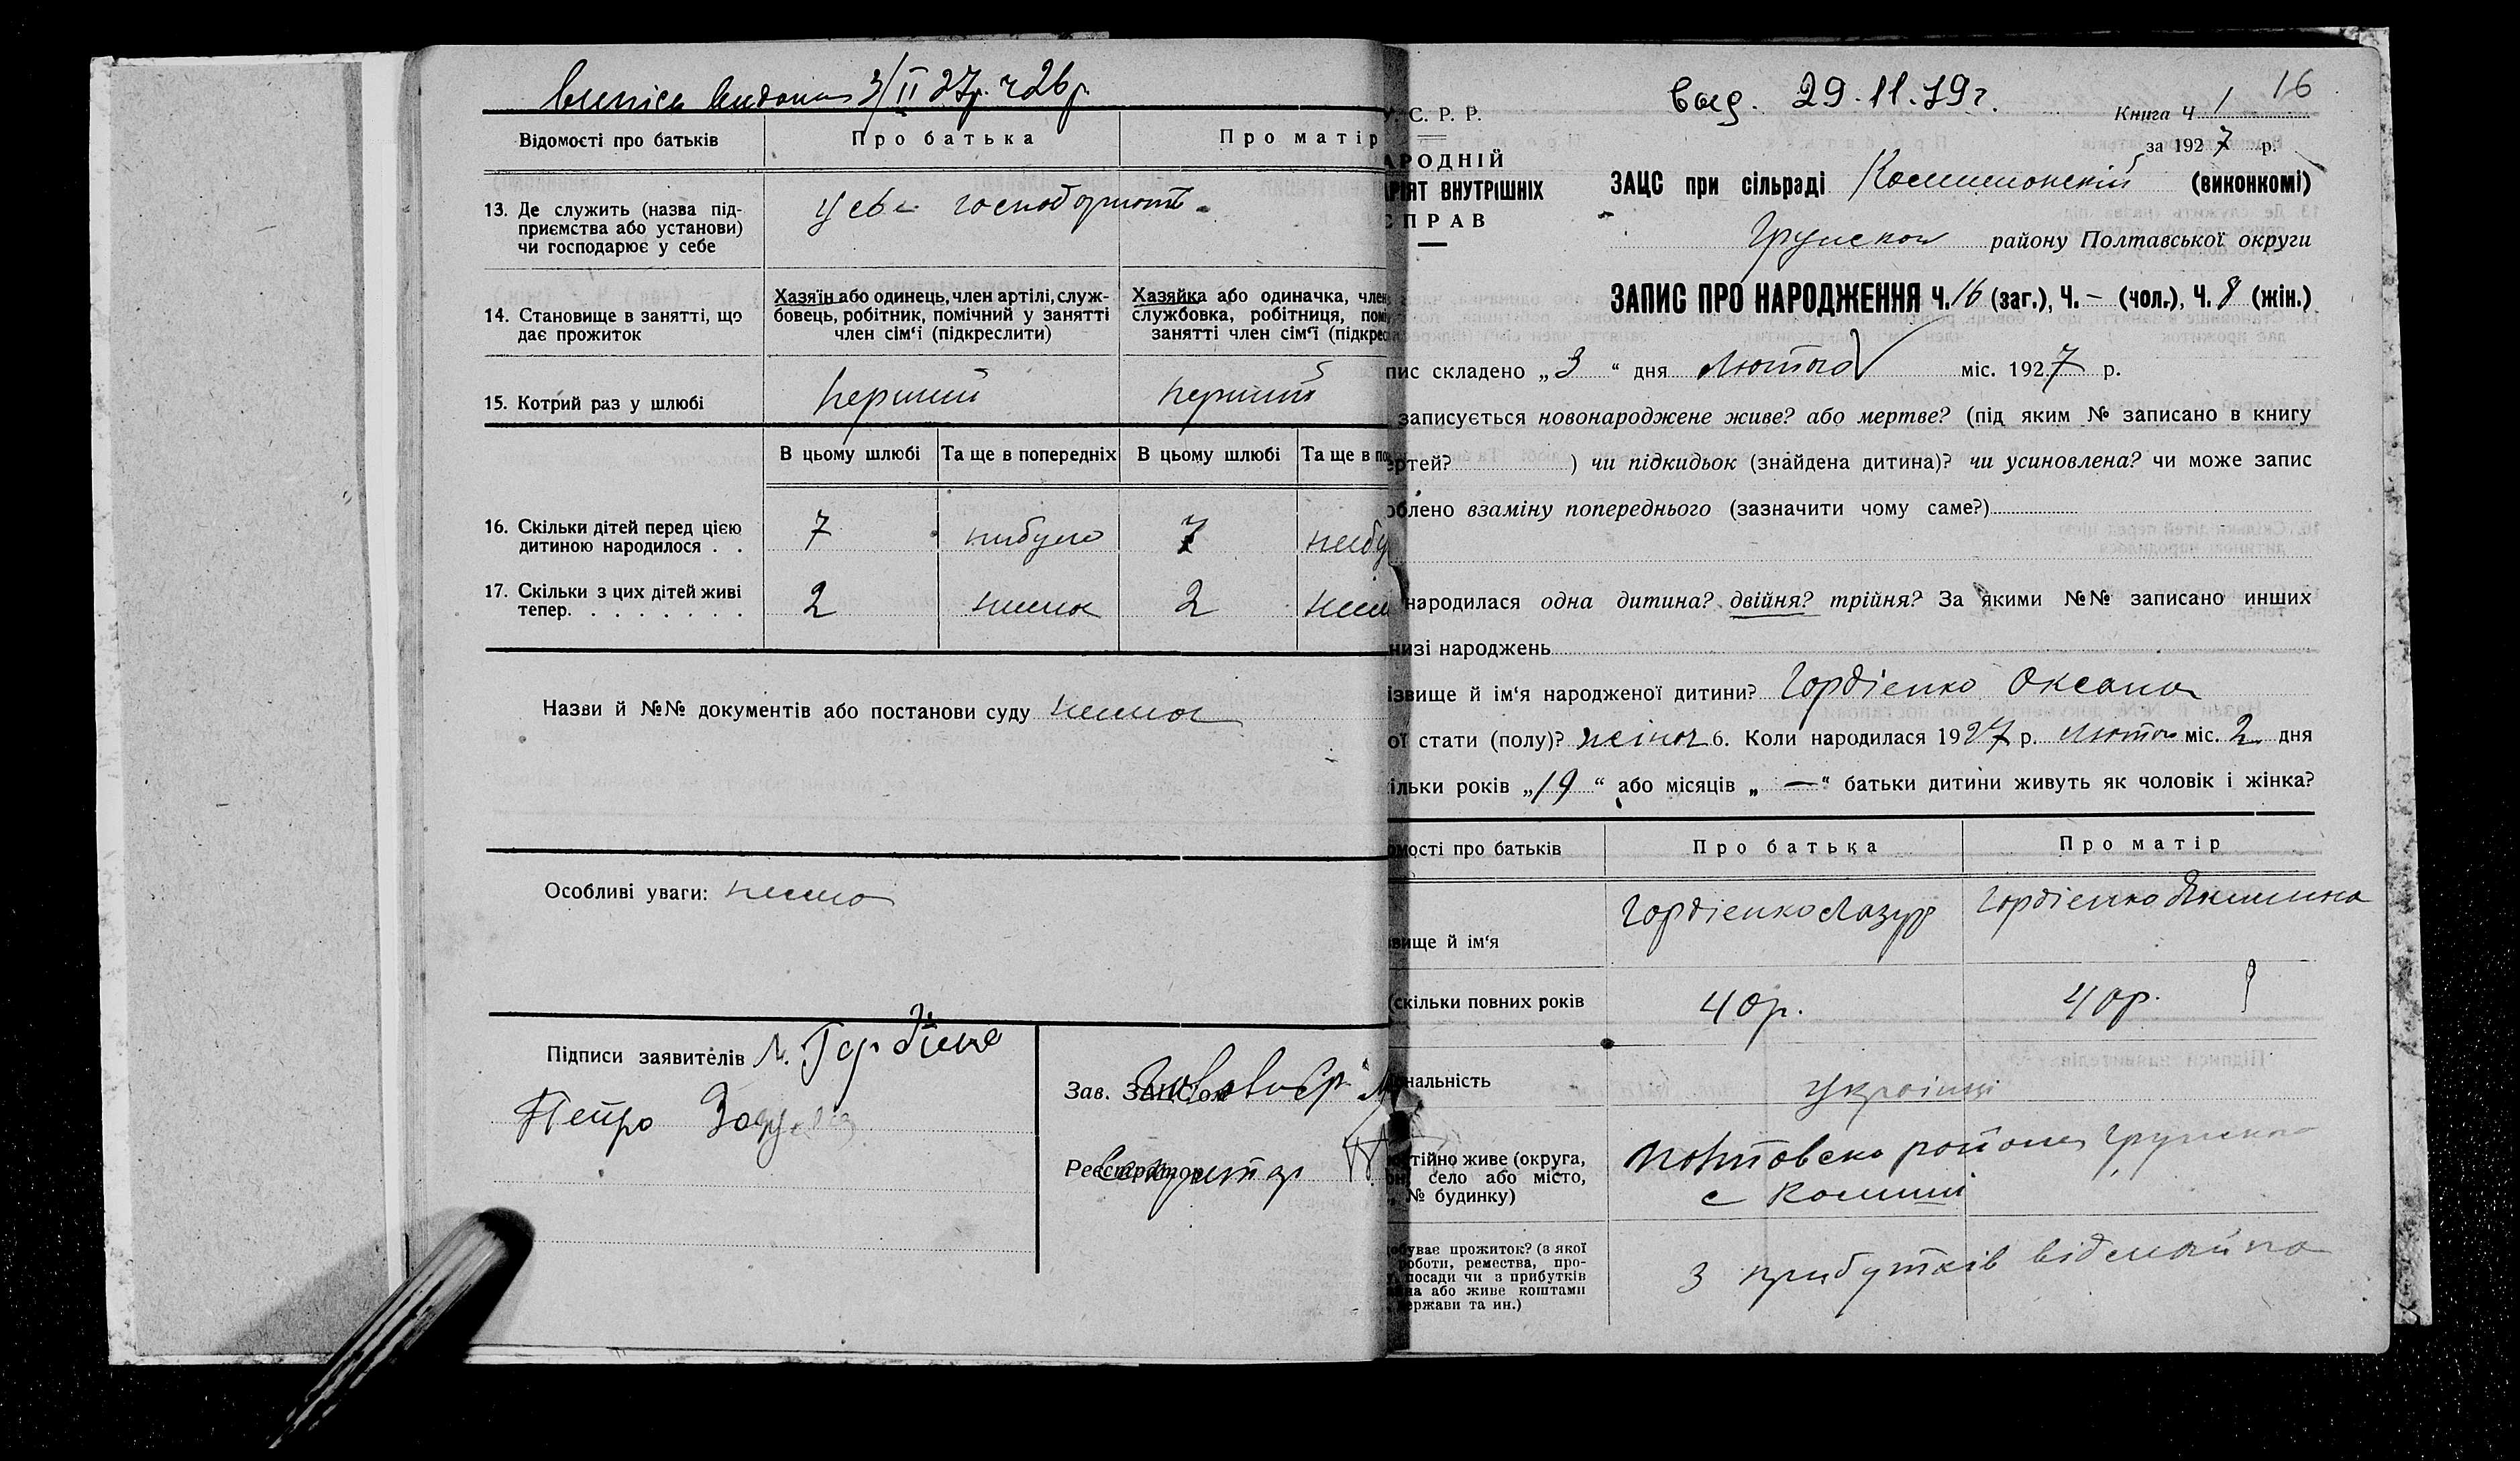 3/II 27р. ч 26 р.
Відомості про батьків
Про батька
Про матір
13. Де служить (назва під-
приємства або установи)
чи господарює у себе
у себе
14. Становище в занятті, що
дає прожиток
Хазяїн або одинець, член артілі, служ-
бовець, робітник, помічний у занятті
член сім'ї (підкреслити)
Хазяйка або одиначка, член
службовка, робітниця, пом
занятті член сім'ї (підкрес
15. Котрий раз у шлюбі
перший
перший
В цьому шлюбі
Та ще в попередніх
В цьому шлюбі
Та ще в по
16. Скільки дітей перед цією
дитиною народилося . .
7
небуло
7
небу
17. Скільки з цих дітей живі
тепер. . . . . . . .
2
нема
2
нем
Назви й №№ документів або постанови суду нема
Особливі уваги: нема
Підписи заявителів
Петро
Зав. ЗАЦС'ом
Реєстратор
Секретар
выд. 29.11.79г.
16
Книга Ч 1
за 1927 р.
У. С. Р. Р.
АРОДНІЙ
АРІЯТ ВНУТРІШНІХ
СПРАВ
ЗАЦС при сільраді (виконкомі)
району Полтавської округи
ЗАПИС ПРО НАРОДЖЕННЯ Ч. 16 (заг.), Ч. – (чол.), Ч. 8 (жін.)
пис складено „ 3 “ дня лютого міс. 1927 р.
записується новонароджене живе? або мертве? (під яким № записано в книгу
ертей? ) чи підкидьок (знайдена дитина)? чи усиновлена? чи може запис
облено взаміну попереднього (зазначити чому саме?)
народилася одна дитина? двійня? трійня? За якими №№ записано инших
низі народжень
ізвище й ім'я народженої дитини? Гордієнко Оксана
ої стати (полу)? жіноч 6. Коли народилася 1927 р. лютого міс. 2 дня
ільки років „19“ або місяців „ — “ батьки дитини живуть як чоловік і жінка?
омості про батьків
Про батька
Про матір
вище й ім'я
Гордієнко Лазур
Гордієнко Якилина
(скільки повних років
40р.
40р.
нальність
Українці
стійно живе (округа,
он, село або місто,
, № будинку)
района
с Комиші
обуває прожиток? (з якої
роботи, ремества, про-
, посади чи з прибутків
айна або живе коштами
держави та ин.)
З прибутків від майна